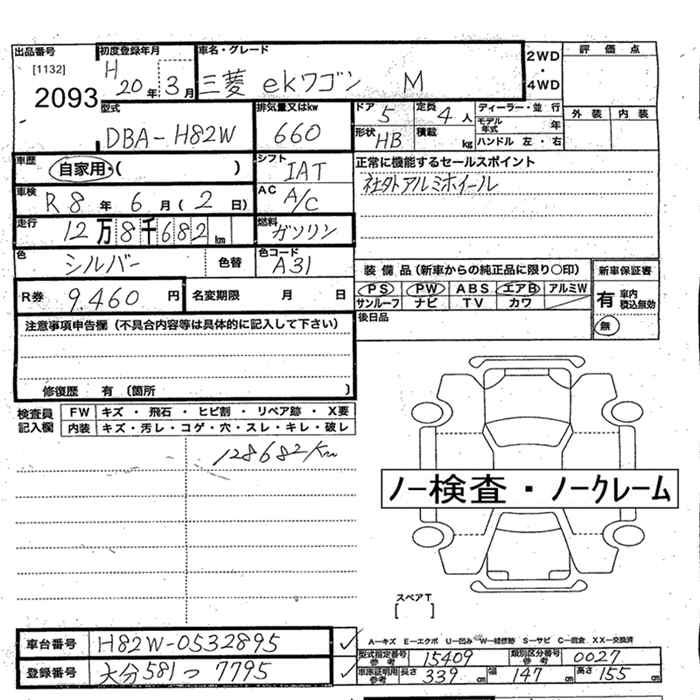 出品番号 初度登録年月 車名・グレード 2WD・4WD 評価点
[1132] 2093 H 20年 3月 三菱 ekワゴン M
型式 排気量又はkw ドア 5 定員 4人 ディーラー・並行 外装 内装
DBA-H82W 660 形状 HB 積載 kg モデル年式 年
ハンドル 左・右
車歴 自家用・( ) シフト IAT 正常に機能するセールスポイント
車検 R8年 6月(2日) AC A/C 社外アルミホイール
走行 12万8千682km 燃料 ガソリン
色 シルバー 色替 色コード A31
装備品(新車からの純正品に限り○印) 新車保証書
R券 9.460円 名変期限 月 日 PS PW ABS エアB アルミW 有 車内積込無効
サンルーフ ナビ TV カワ 無
注意事項申告欄(不具合内容等は具体的に記入して下さい) 後日品
修復歴 有(箇所 )
検査員記入欄 FW キズ・飛石・ヒビ割・リペア跡・X要
内装 キズ・汚レ・コゲ・穴・スレ・キレ・破レ
128682Km
ノー検査・ノークレーム
スペアT
[ ]
車台番号 H82W-0532895 A-キズ E-エクボ U-凹み W-補修跡 S-サビ C-腐食 XX-交換済
型式指定番号参考 15409 類別区分番号参考 0027
登録番号 大分581つ7795 車庫証明用参考 長さ 339cm 幅 147cm 高さ 155cm